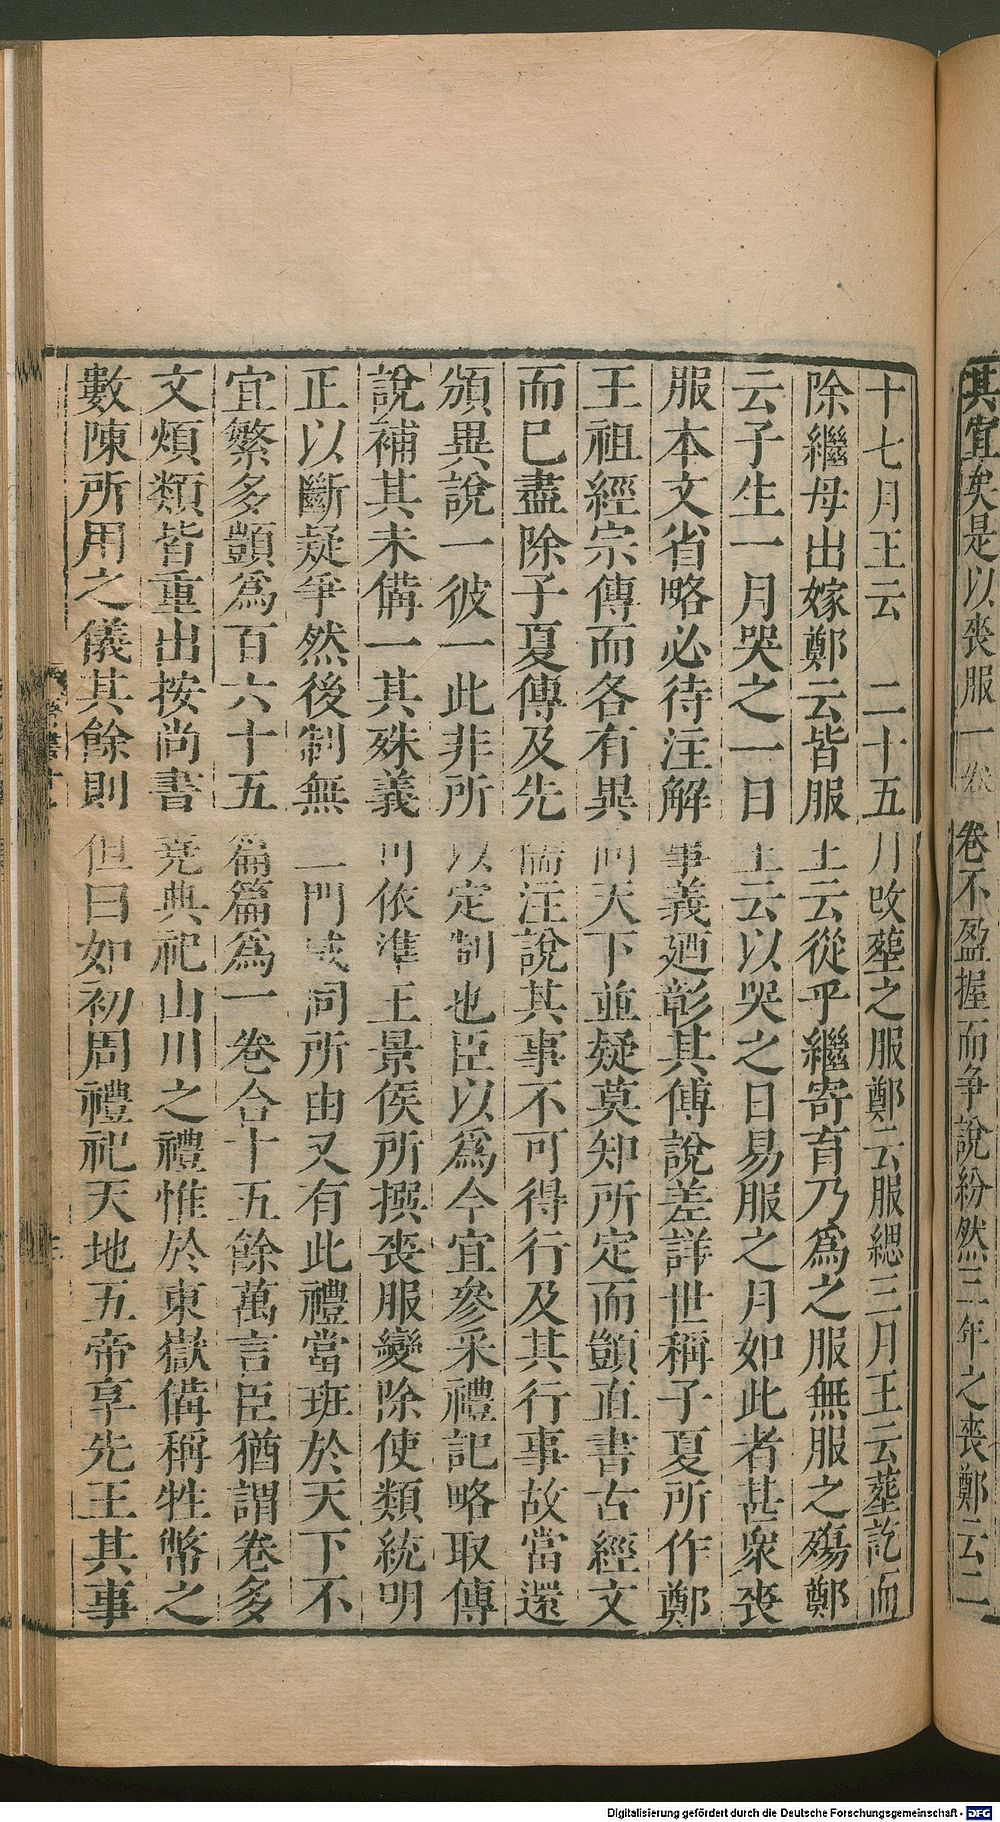 其宜矣是以喪服一卷卷不盈握而争說紛然三年之喪鄭云二
十七月王云 二十五月改塟之服鄭云服緦三月王云塟訖而
除繼母出嫁鄭云皆服王云從乎繼寄育乃爲之服無服之殤鄭
云子生一月哭之一日王云以哭之日易服之月如此者甚衆喪
服本文省略必待注解事義廼彰其傅說差詳世稱子夏所作鄭
王祖經宗傳而各有異同天下並疑莫知所定而顗直書古經文
而巳盡除子夏傳及先儒注說其事不可得行及其行事故當還
頒異說一彼一此非所以定制也臣以爲今宜參采禮記略取傳
說補其未備一其殊義可依準王景侯所撰喪服變除使類統明
正以斷疑爭然後制無二門咸同所由又有此禮當班於天下不
宜繁多顗爲百六十五篇篇爲一卷合十五餘萬言臣猶謂卷多
文煩類皆重出按尚書堯典祀山川之禮惟於東嶽備稱牲幣之
數陳所用之儀其餘則但曰如初周禮祀天地五帝享先王其事
Digitalisierung gefördert durch die Deutsche Forschungsgemeinschaft - DFG